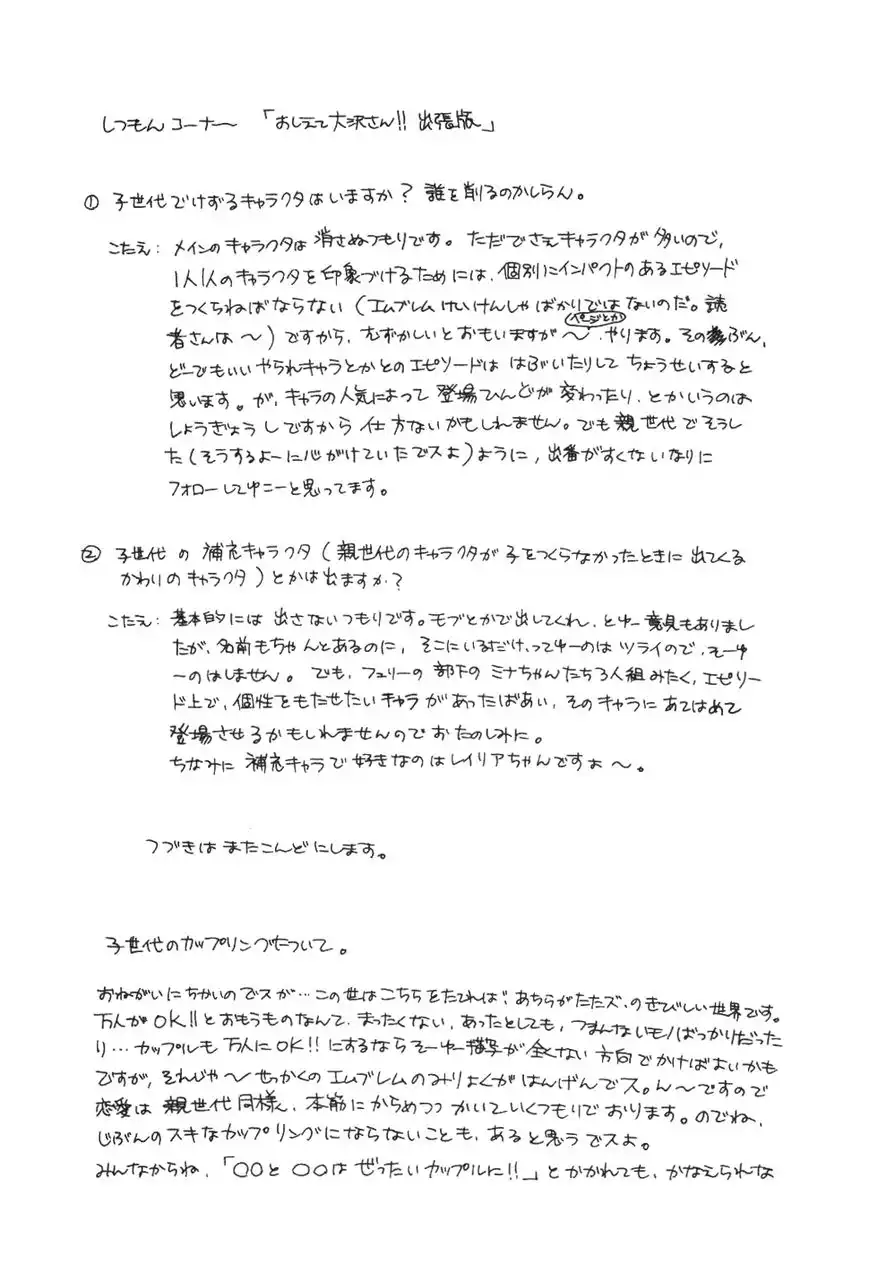 しつもんコーナー 「おしえて大沢さん!! 出張版」
① 子世代でけずるキャラクタはいますか? 誰を削るのかしらん。
こたえ: メインのキャラクタは消さぬつもりです。ただでさえキャラクタが多いので、
1人1人のキャラクタを印象づけるためには、個別にインパクトのあるエピソード
をつくらねばならない(エムブレムけいけんしゃばかりではないのだ。読
者さんは〜)ですから、むずかしいとおもいますが〜(ページとか)、やります。そのぶん、
どーでもいいやられキャラとかとのエピソードははぶいたりしてちょうせいすると
思います。が、キャラの人気によって登場ひんどが変わったり、とかいうのは
しょうぎょうしですから仕方ないかもしれません。でも親世代でそうし
た(そうするよーに心がけていたでスよ)ように、出番がすくないなりに
フォローしてゆこーと思ってます。
② 子世代の補充キャラクタ(親世代のキャラクタが子をつくらなかったときに出てくる
かわりのキャラクタ)とかは出ますか?
こたえ: 基本的には出さないつもりです。モブとかで出してくれ、とゆー意見もありまし
たが、名前もちゃんとあるのに、そこにいるだけ、ってゆーのはツライので、そーゆ
ーのはしません。でも、フュリーの部下のミナちゃんたち3人組みたく、エピソー
ド上で、個性をもたせたいキャラがあったばあい、そのキャラにあてはめて
登場させるかもしれませんのでおたのしみに。
ちなみに補充キャラで好きなのはレイリアちゃんですよ〜。
つづきはまたこんどにします。
子世代のカップリングについて。
おねがいにちかいのでスが…この世はこちらをたてればあちらがたたズ、のきびしい世界です。
万人がOK!!とおもうものなんて、まったくない、あったとしても、つまんないモノばっかりだった
り…カップルも万人にOK!!にするならそーゆー描写が全くない方向でかけばよいかも
ですが、それじゃ〜せっかくのエムブレムのみりょくがはんげんでス。ん〜ですので
恋愛は親世代同様、本筋にからめつつかいていくつもりでおります。のでね、
じぶんのスキなカップリングにならないことも、あると思うでスよ。
みんなからね、「○○と○○はぜったいカップルに!!」とかかれても、かなえられな